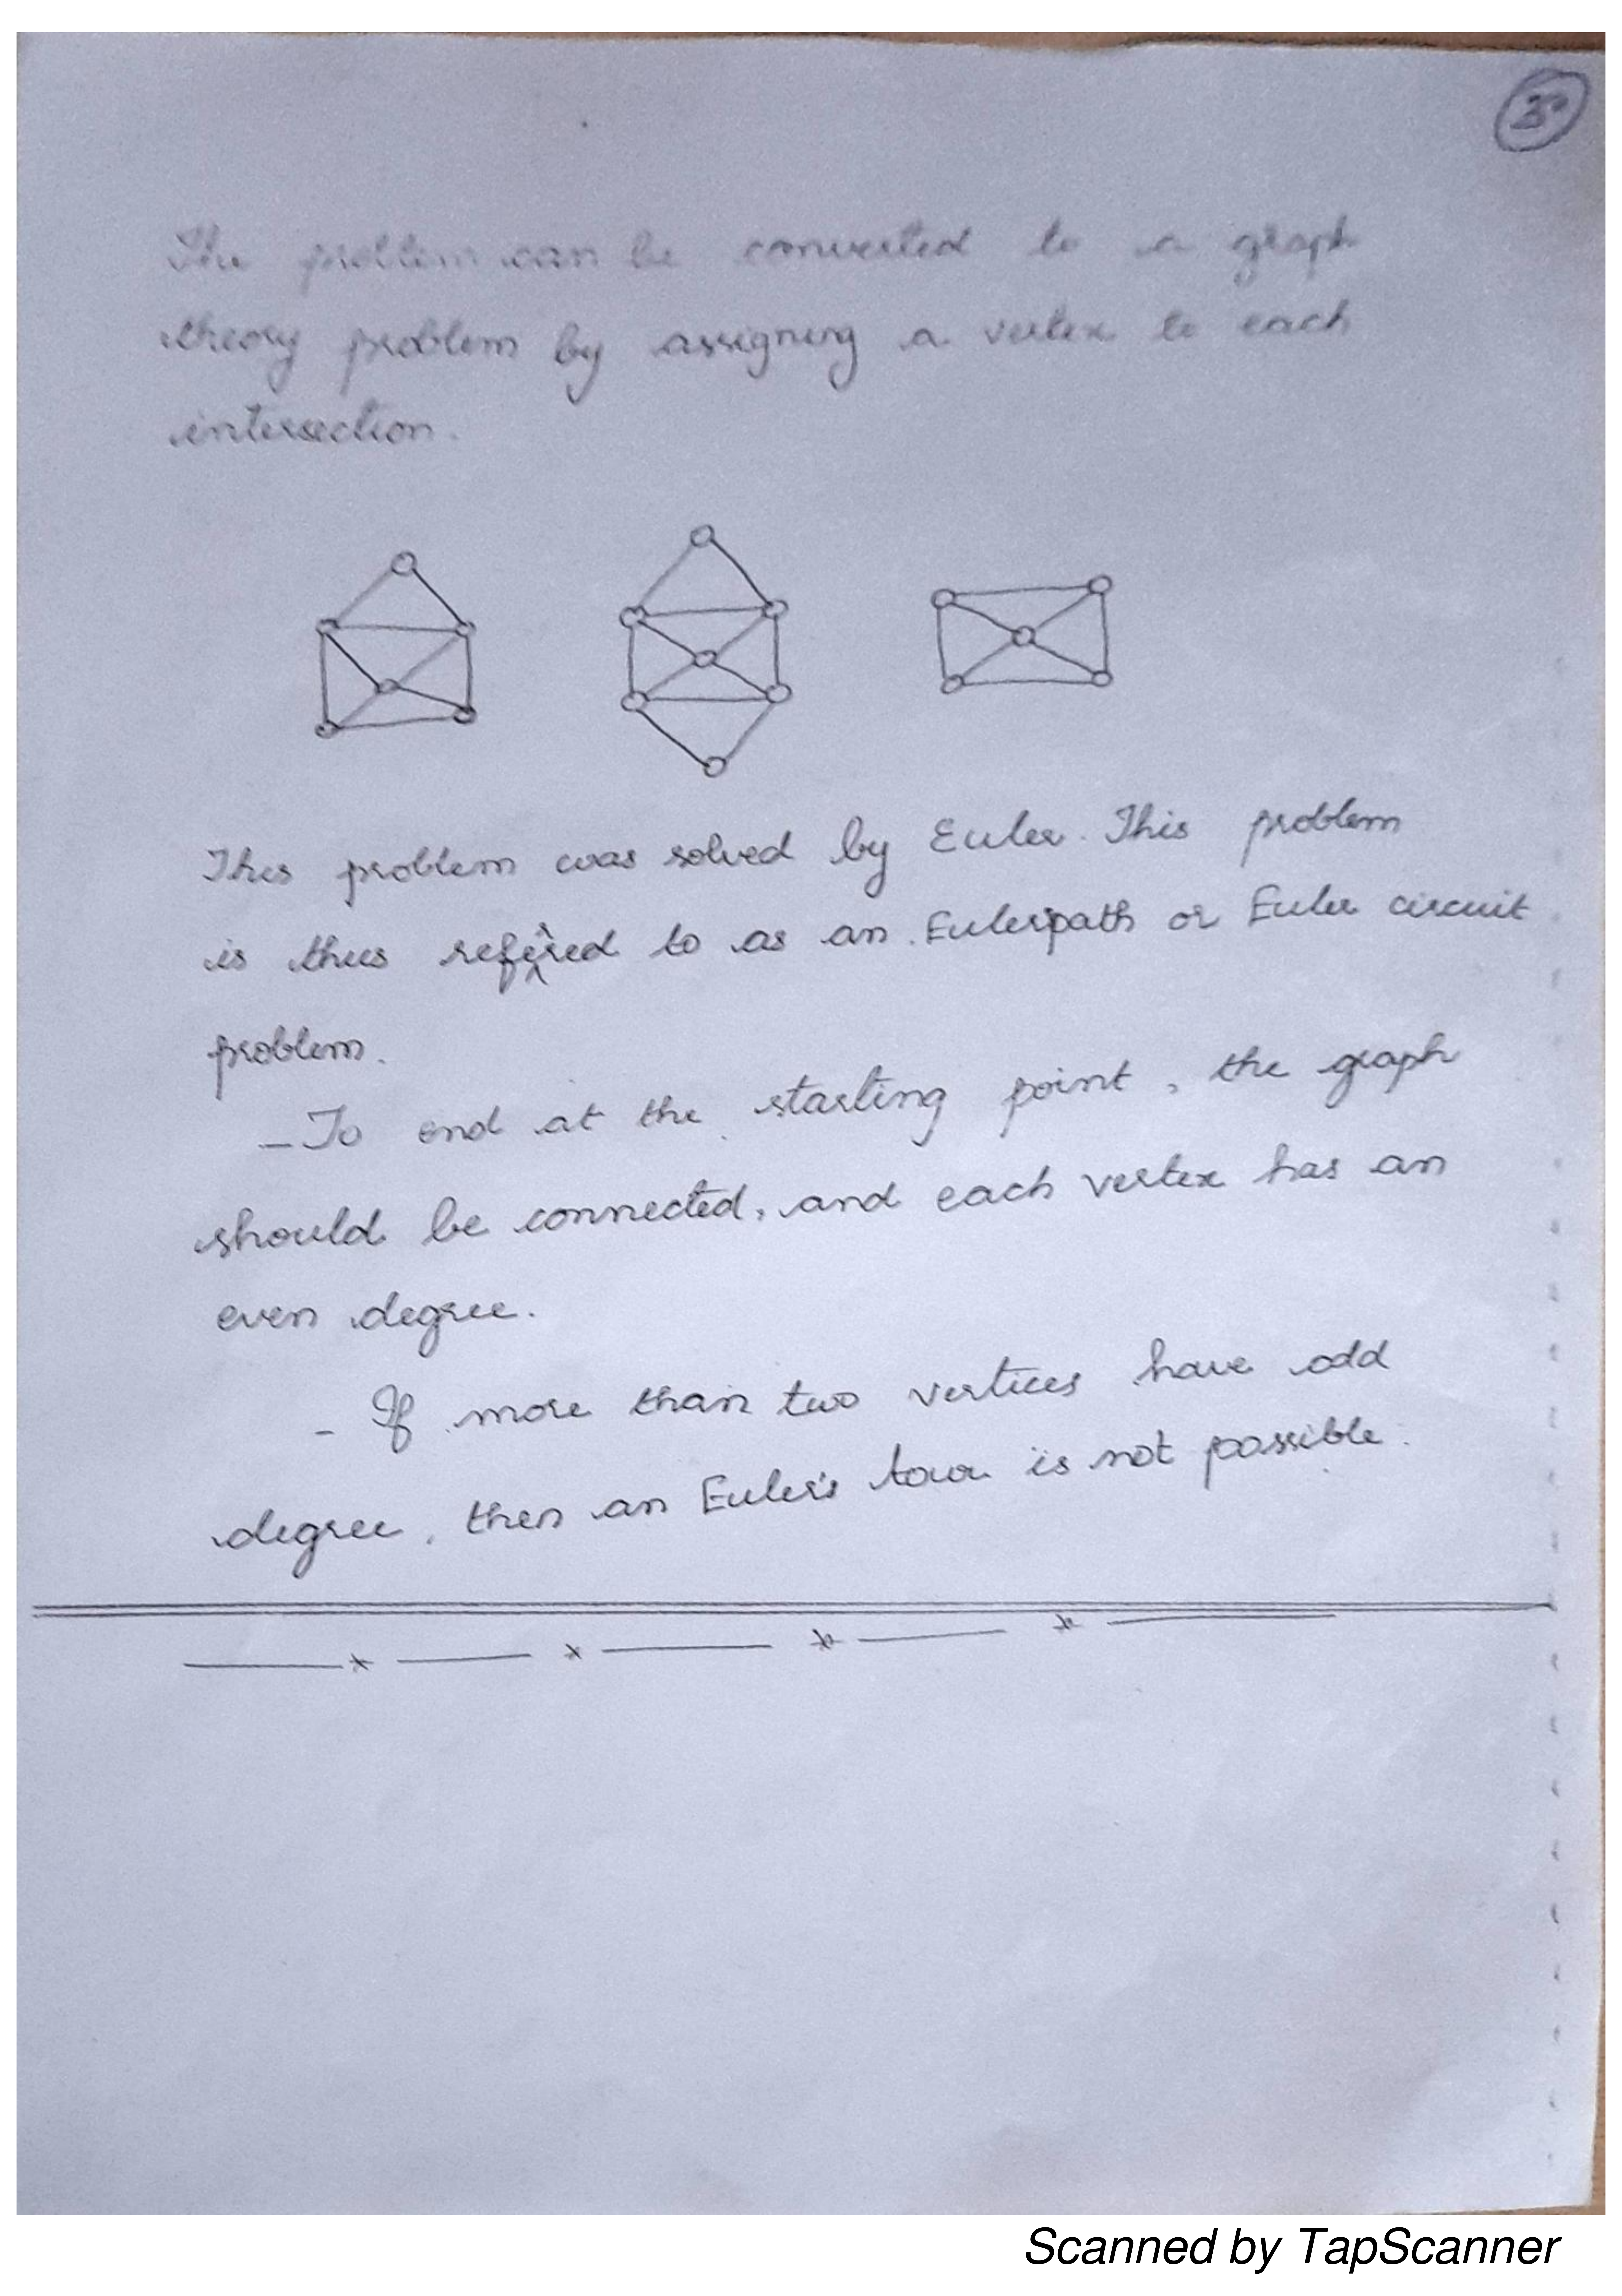 30
The problem can be converted to a graph
theory problem by assigning a vertex to each
intersection.
This problem was solved by Euler. This problem
is thus referred to as an Euler path or Euler circuit
problem.
– To end at the starting point, the graph
should be connected, and each vertex has an
even degree.
- If more than two vertices have odd
degree, then an Euler's tour is not possible.
Scanned by TapScanner